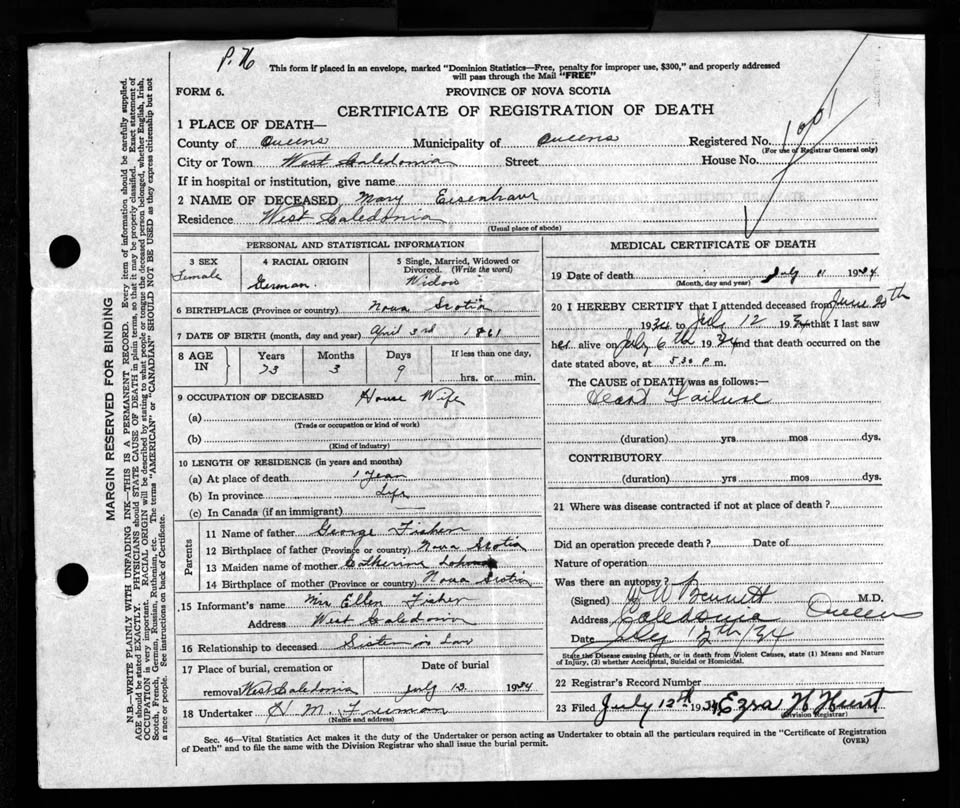 P. N
This form if placed in an envelope, marked "Dominion Statistics—Free, penalty for improper use, $300," and properly addressed
will pass through the Mail "FREE"
FORM 6.
PROVINCE OF NOVA SCOTIA
CERTIFICATE OF REGISTRATION OF DEATH
1 PLACE OF DEATH—
County of Queens Municipality of Queens Registered No.
(For use of Registrar General only)
City or Town West Caledonia Street House No.
If in hospital or institution, give name
2 NAME OF DECEASED Mary Eisenhaur
Residence West Caledonia
(Usual place of abode)
PERSONAL AND STATISTICAL INFORMATION
3 SEX 4 RACIAL ORIGIN 5 Single, Married, Widowed or
Divorced. (Write the word)
Female German. Widow
6 BIRTHPLACE (Province or country) Nova Scotia
7 DATE OF BIRTH (month, day and year) April 3rd 1861
8 AGE IN Years Months Days If less than one day,
73 3 9 hrs. or min.
9 OCCUPATION OF DECEASED House Wife
(a)
(Trade or occupation or kind of work)
(b)
(Kind of industry)
10 LENGTH OF RESIDENCE (in years and months)
(a) At place of death 1 Year
(b) In province Life
(c) In Canada (if an immigrant)
Parents
11 Name of father George Fisher
12 Birthplace of father (Province or country) Nova Scotia
13 Maiden name of mother Catherine
14 Birthplace of mother (Province or country) Nova Scotia
15 Informant's name Mrs Ellen Fisher
Address West Caledonia
16 Relationship to deceased Sister in Law
17 Place of burial, cremation or Date of burial
removal West Caledonia July 13. 1934
18 Undertaker H M. Freeman
(Name and address)
MEDICAL CERTIFICATE OF DEATH
19 Date of death July 11 1934
(Month, day and year)
20 I HEREBY CERTIFY that I attended deceased from June 20th
1934 to July 12 1934 that I last saw
her alive on July 6th 1934 and that death occurred on the
date stated above, at 5 30 P m.
The CAUSE OF DEATH was as follows:—
Heart Failure
(duration) yrs mos dys.
CONTRIBUTORY
(duration) yrs mos dys.
21 Where was disease contracted if not at place of death?
Did an operation precede death? Date of
Nature of operation
Was there an autopsy?
(Signed) W A Bennett M.D.
Address Caledonia Queens
Date July 12th/34
State the Disease causing Death, or in death from Violent Causes, state (1) Means and Nature
of Injury, (2) whether Accidental, Suicidal or Homicidal.
22 Registrar's Record Number
23 Filed July 12th 1934 Ezra H Hunt
(Division Registrar)
Sec. 46—Vital Statistics Act makes it the duty of the Undertaker or person acting as Undertaker to obtain all the particulars required in the "Certificate of Registration
of Death" and to file the same with the Division Registrar who shall issue the burial permit.
(OVER)
MARGIN RESERVED FOR BINDING
N.B.—WRITE PLAINLY WITH UNFADING INK—THIS IS A PERMANENT RECORD. Every item of information should be carefully supplied.
AGE should be stated EXACTLY. PHYSICIANS should STATE CAUSE OF DEATH in plain terms, so that it may be properly classified. Exact statement of
OCCUPATION is very important. RACIAL ORIGIN will be described by stating to what people or tongue the deceased person belonged, whether English, Irish,
Scotch, French, German, Russian, Ruthenian, etc. The terms "AMERICAN" or "CANADIAN" SHOULD NOT BE USED as they express citizenship but not
a race or people. See instructions on back of Certificate.